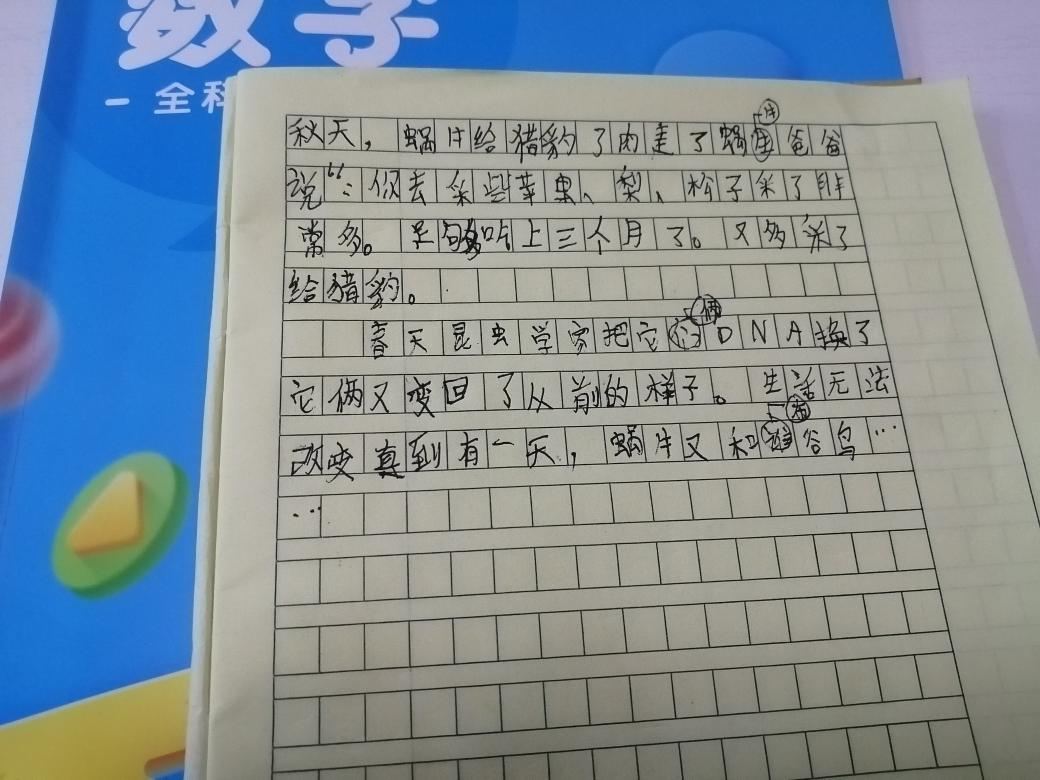 数学
- 全科
秋天，蜗牛给猎豹了肉走了蜗牛爸爸
说“：你去采些苹果、梨、松子采了非
常多。足够吃上三个月了。又多采了
给猎豹。
春天昆虫学家把它俩DNA换了
它俩又变回了从前的样子。生活无法
改变真到有一天，蜗牛又和布谷鸟…
…